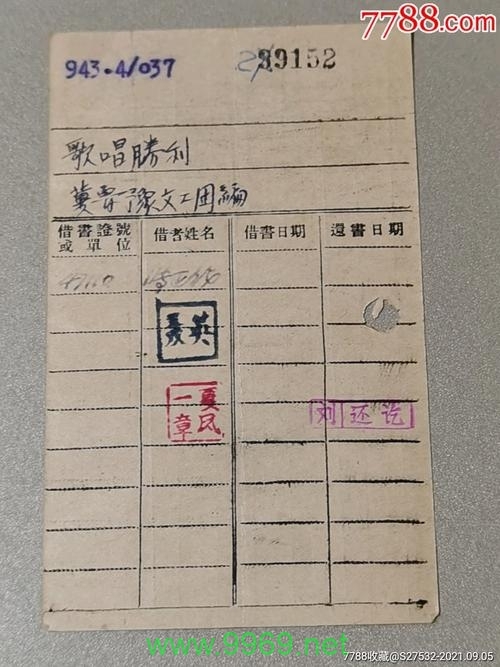 7788.com
943.4/037
39152
歌唱勝利
冀魯豫文工团編
借書證號或單位 借者姓名 借書日期 還書日期
英
一章
刘还讫
www.9969.net
7788收藏@S27532-2021.09.05